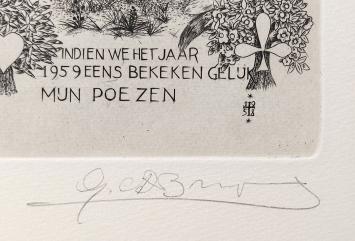 INDIEN WE HET JAAR
1959 EENS BEKEKEN GELIJK
MIJN POEZEN